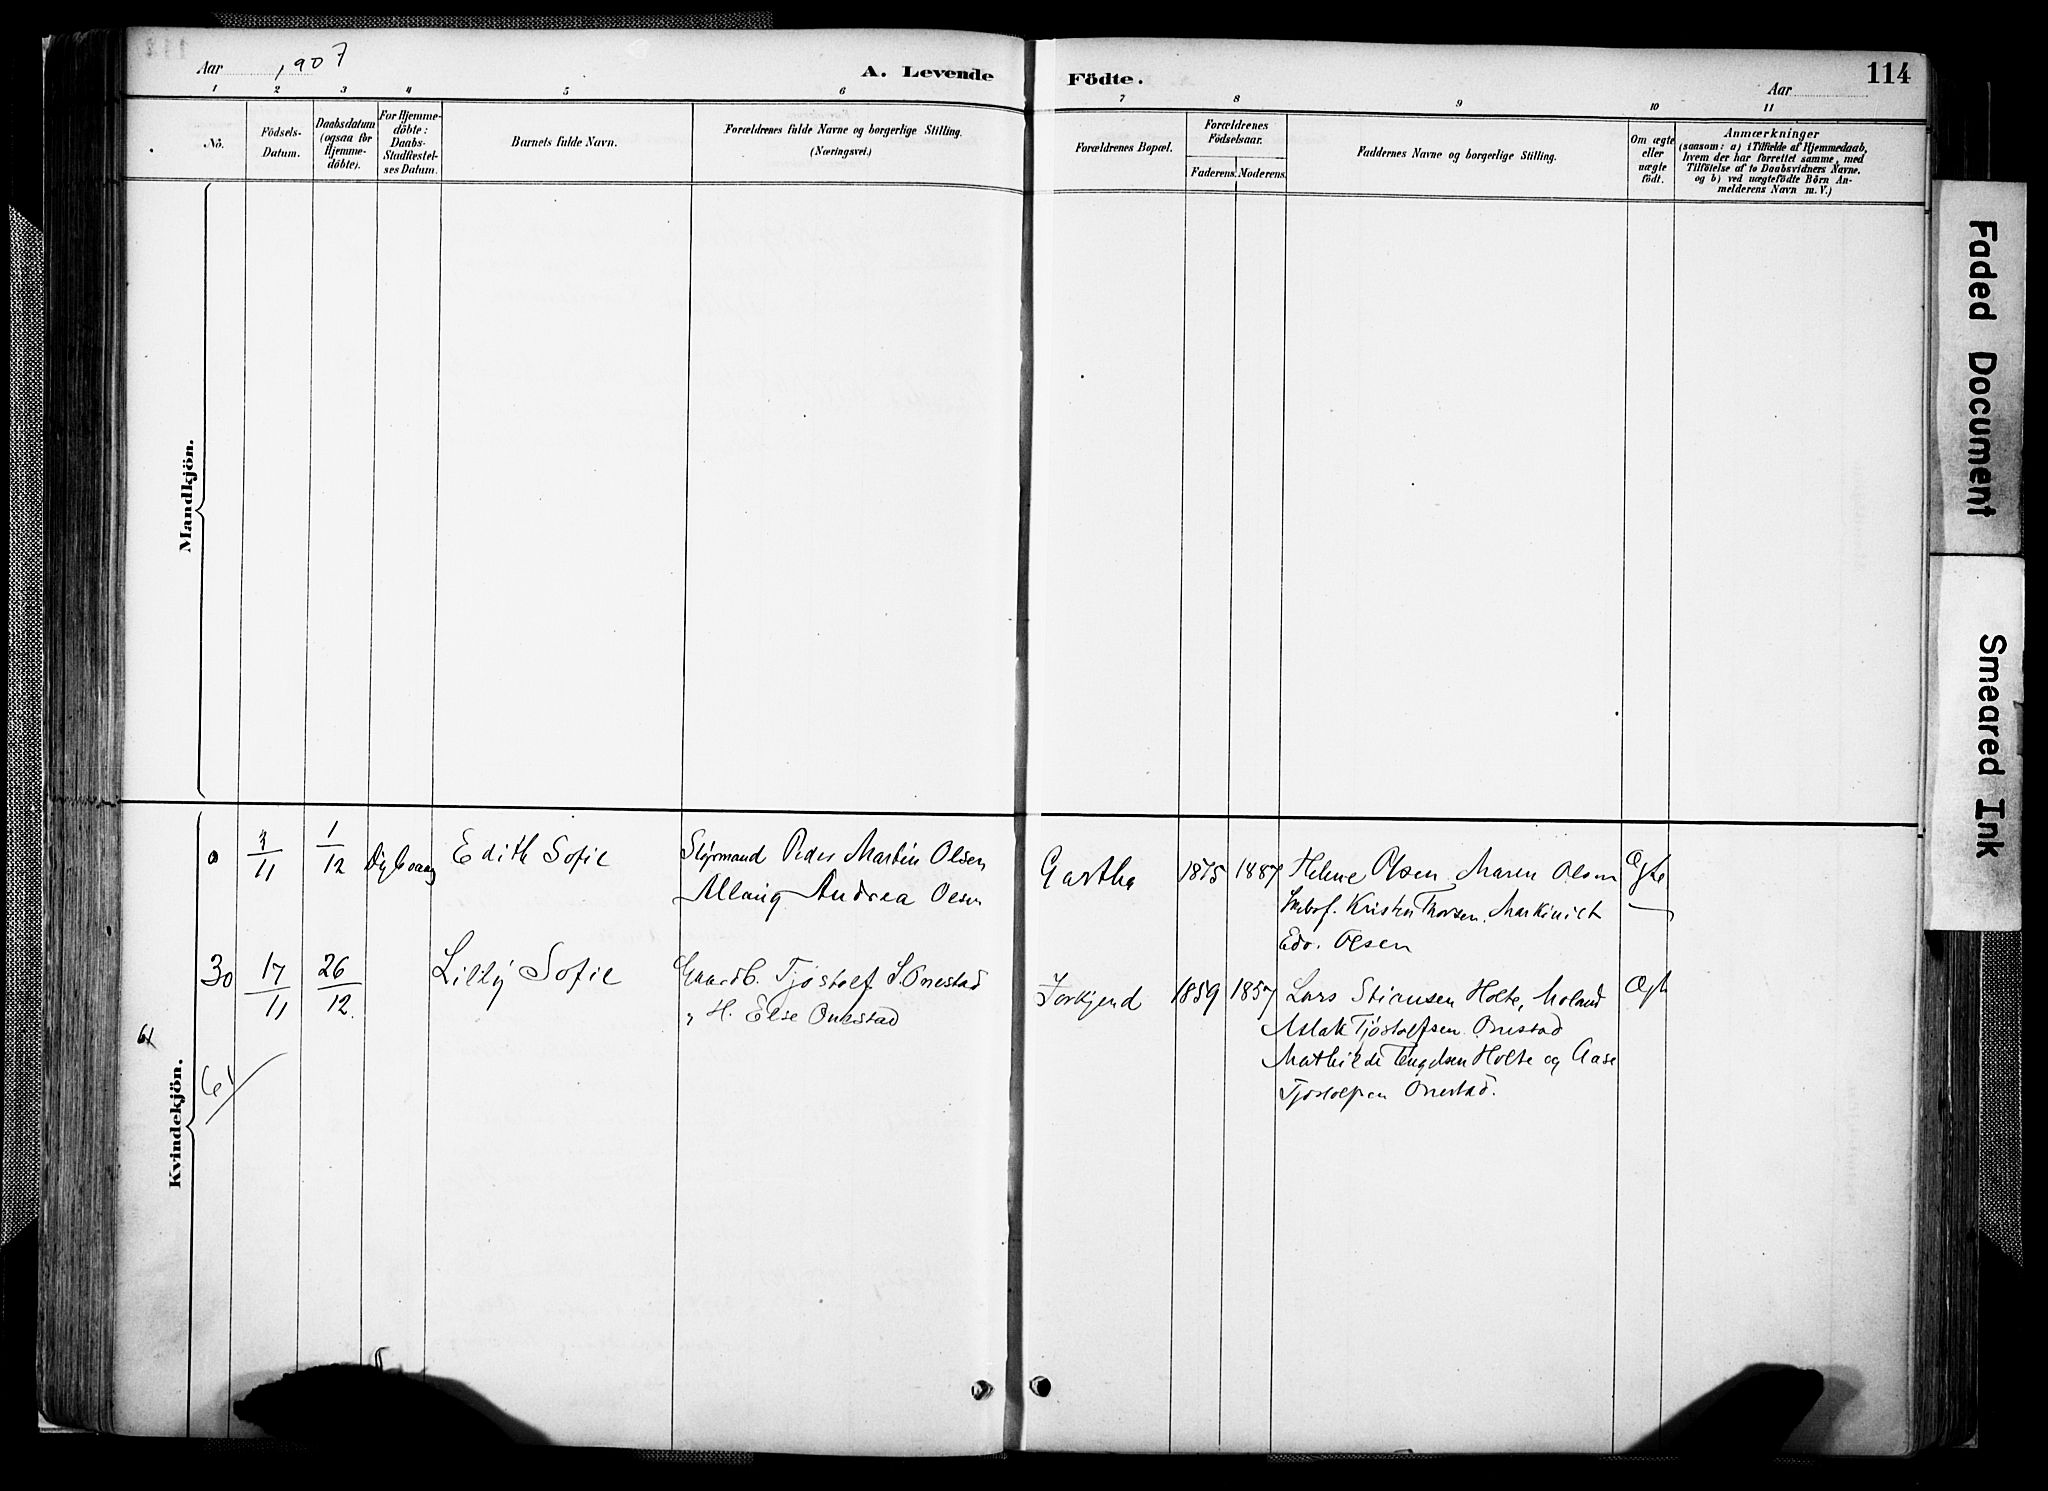 Aar 1907
A. Levende Födte.
114
Aar
1 2 3 4 5 6 7 8 9 10 11
No.
Födsels-
Datum.
Daabsdatum
(ogsaa for
Hjemme-
döbte).
For Hjemme-
döbte:
Daabs-
Stadfestel-
ses Datum.
Barnets fulde Navn.
Forældrenes fulde Navne og borgerlige Stilling.
(Næringsvei.)
Forældrenes Bopæl.
Forældrenes
Födselsaar.
Faderens. Moderens.
Faddernes Navne og borgerlige Stilling.
Om ægte
eller
uægte
födt.
Anmærkninger
(saasom: a) i Tilfælde af Hjemmedaab,
hvem der har forrettet samme, med
Tilföielse af to Daabsvidners Navne,
og b) ved uægtefödte Börn An-
melderens Navn m. V.)
Mandkjön.
Kvindekjön.
11
1
12
Edith Sofie
Styrmand Peder Martin Olsen
Andrea Olsen
Gartha
1875 1887
Helene Olsen Maren Olsen
Kristen Thorsen
Edv. Olsen
Ægte
30
17
11
26
12.
Lilly Sofie
Gaardb. Tjøstolf S. Onestad
" H. Else Onestad
1859 1857
Lars Stiansen Holte, Moland
Aslak Tjøstolfsen Onestad
Mathilde Tengelsen Holte og Aase
Tjøstolfsen Onestad.
Ægt
61
61
Faded Document
Smeared Ink